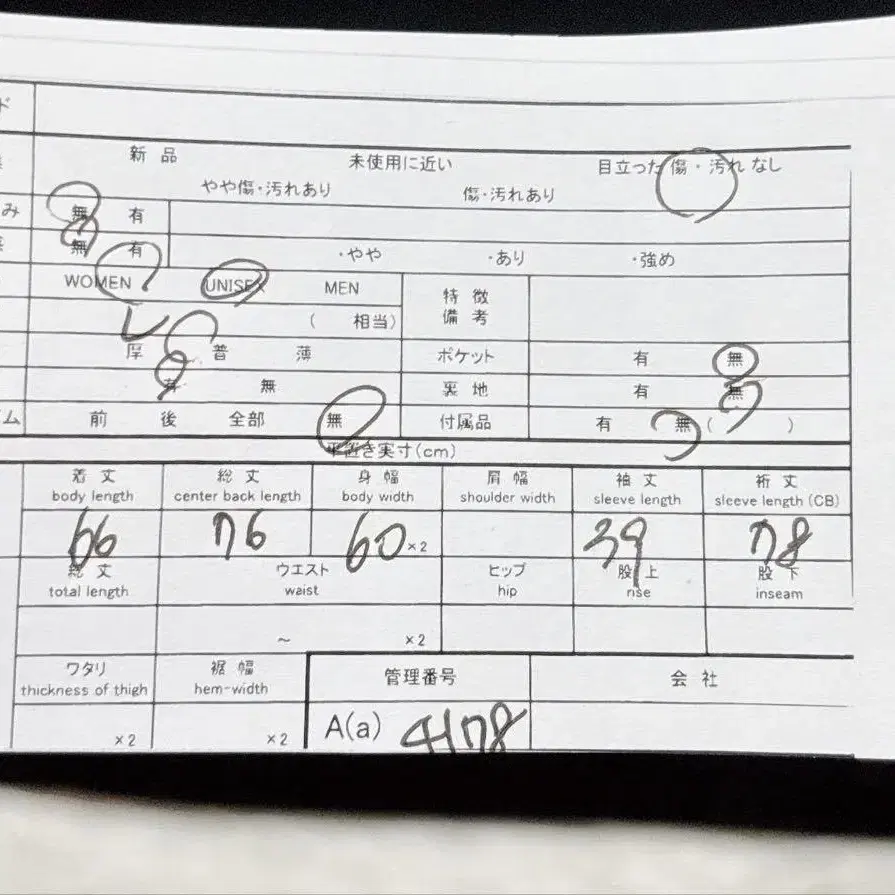 ド
新品 未使用に近い 目立った傷・汚れなし
やや傷・汚れあり 傷・汚れあり
み 無 有
無 有 ・やや ・あり ・強め
WOMEN UNISEX MEN 特徴
備考
L ( 相当)
厚 普 薄 ポケット 有 無
有 無 裏地 有 無
ム 前 後 全部 無 付属品 有 無 ( )
平置き実寸(cm)
着丈 総丈 身幅 肩幅 袖丈 裄丈
body length center back length body width shoulder width sleeve length sleeve length (CB)
66 76 60 ×2 39 78
総丈 ウエスト ヒップ 股上 股下
total length waist hip rise inseam
~ ×2
ワタリ 裾幅 管理番号 会社
thickness of thigh hem-width
×2 ×2 A(a) 4178